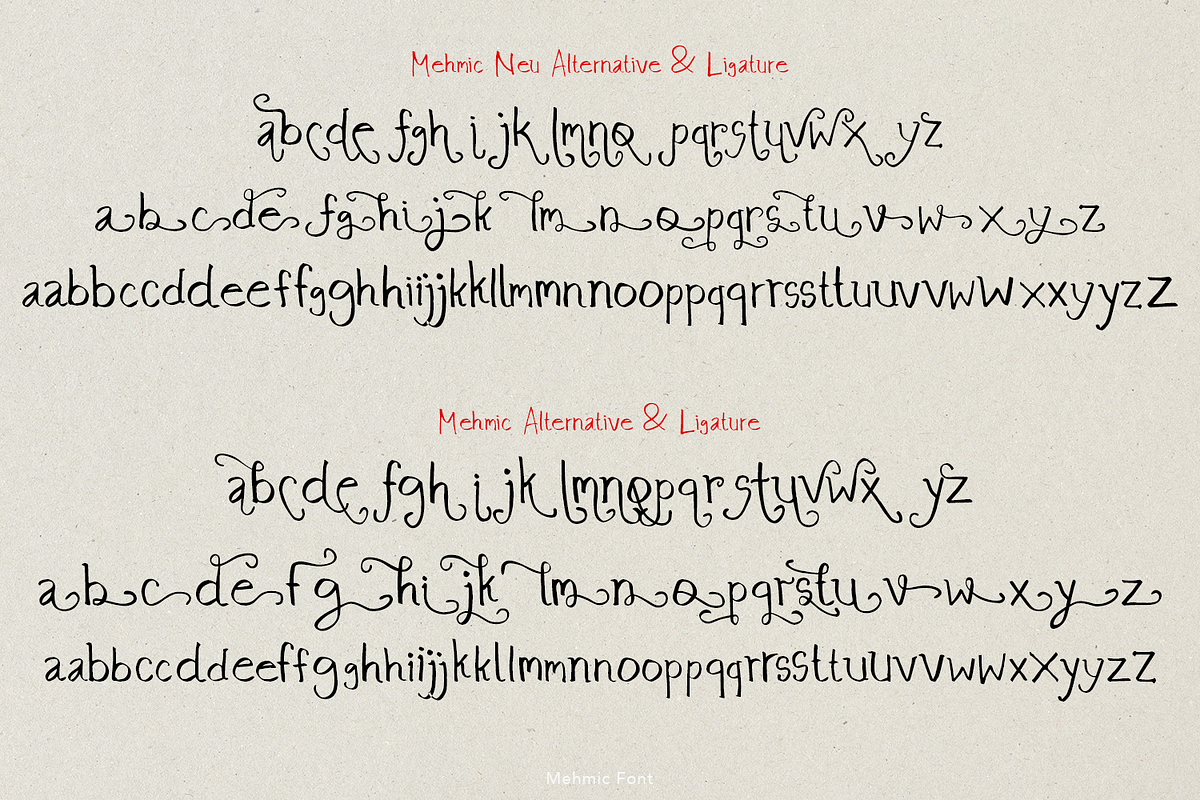 Mehmic Neu Alternative & Ligature
abcde fgh i jk lmno pqrstuvwx yz
a b c de fghijk lm n o pqrstu v w x y z
aabbccddeeffgghhiijjkkllmmnnooppqqrrssttuuvvwwxxyyzz
Mehmic Alternative & Ligature
abcde fgh i jk lmnopqr stuvwx yz
a b c de f g hi jk lm n o pqrstu v w x y z
aabbccddeeffgghhiijjkkllmmnnooppqqrrssttuuvvwwxxyyzz
Mehmic Font